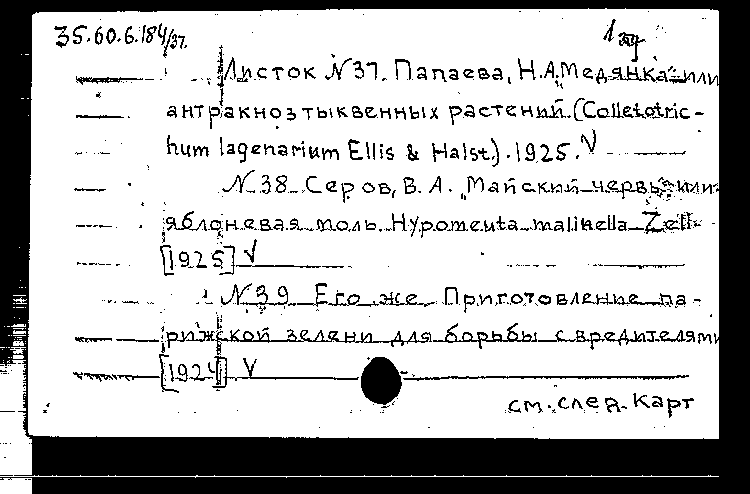 35.60.6.184/37.
1 экз
Листок N37. Папаева, Н.А. „Медянка" или
антракноз тыквенных растений. (Colletotric-
hum lagenarium Ellis & Halst.). 1925. V
N38. Серов, В.А. „Майский червь" или
яблоневая моль. Hypomeuta malinella Zell.
[1925] V
N39. Его же. Приготовление па-
рижской зелени для борьбы с вредителями
[1924] V
см. след. карт